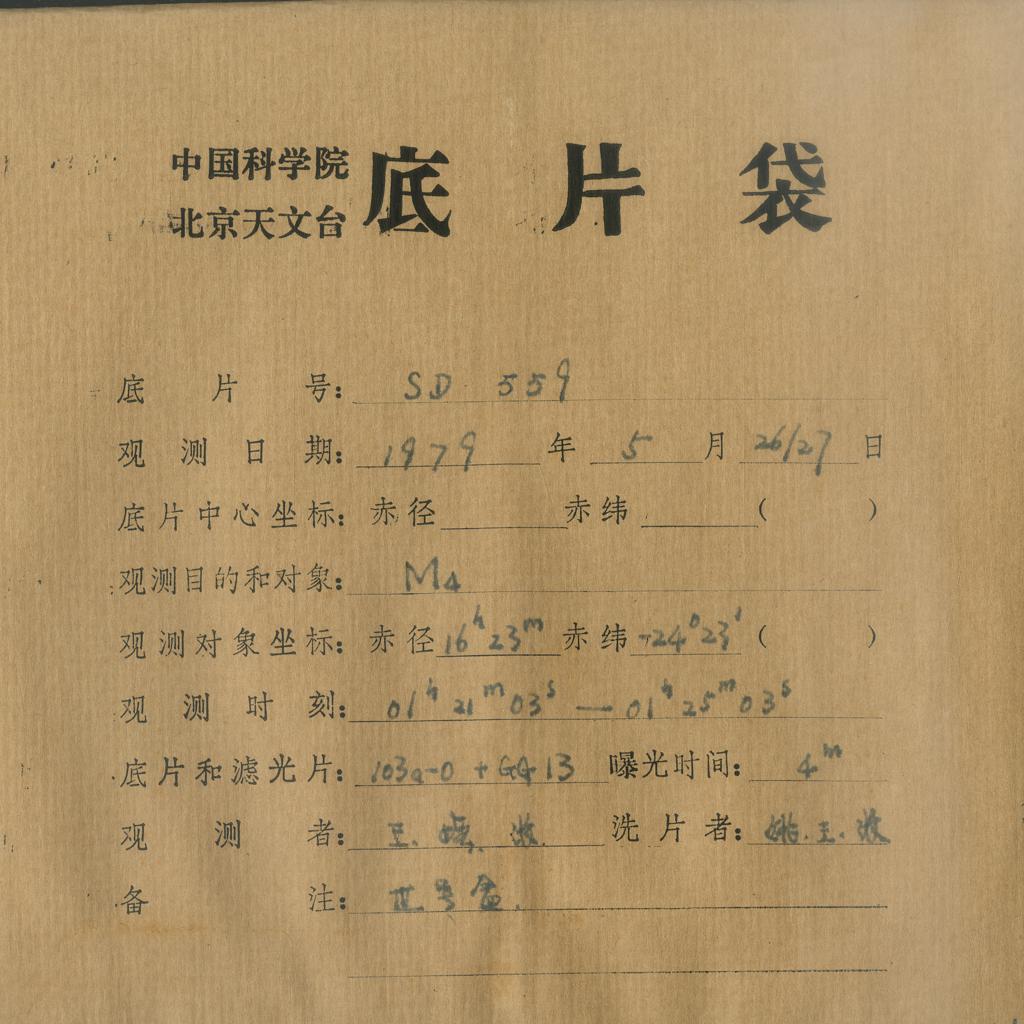 中国科学院
北京天文台 底片袋
底片号: SD 559
观测日期: 1979年 5月 26/27日
底片中心坐标: 赤径 赤纬 ( )
观测目的和对象: M4
观测对象坐标: 赤径 16h23m 赤纬 -24°23′ ( )
观测时刻: 01h 21m 03s — 01h 25m 03s
底片和滤光片: 103a-O + GG 13 曝光时间: 4m
观测者: 王. 洗片者: 姚. 王.
备注: